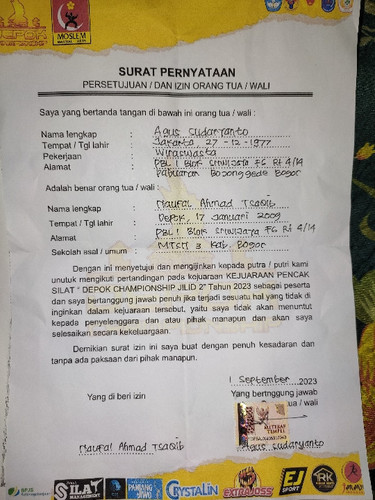 DEPOK
MOSLEM
SURAT PERNYATAAN
PERSETUJUAN / DAN IZIN ORANG TUA / WALI
Saya yang bertanda tangan di bawah ini orang tua / wali :
Nama lengkap : Agus Sudaryanto
Tempat / Tgl lahir : Jakarta, 27 - 12 - 1977
Pekerjaan : Wiraswasta
Alamat : PBL 1 Blok Sriwijaya F6 Rt 4/14
Pabuaran Bojonggede Bogor
Adalah benar orang tua / wali :
Nama lengkap : Naufal Ahmad Tsaqib
Tempat / Tgl lahir : Depok, 17 Januari 2009
Alamat : PBL 1 Blok Sriwijaya F6 Rt 4/14
Sekolah asal / umum : MTSN 3 Kab. Bogor
Dengan ini menyetujui dan mengijinkan kepada putra / putri kami
ununtuk mengikuti pertandingan pada kejuaraan KEJUARAAN PENCAK
SILAT " DEPOK CHAMPIONSHIP JILID 2" Tahun 2023 sebagai peserta
dan saya bertanggung jawab penuh jika terjadi sesuatu hal yang tidak di
inginkan dalam kejuaraan tersebut, yaitu saya tidak akan menuntut
kepada penyelenggara dan atau pihak manapun dan akan saya
selesaikan secara kekeluargaan.
Demikian surat izin ini saya buat dengan penuh kesadaran dan
tanpa ada paksaan dari pihak manapun.
1 September 2023
Yang di beri izin
Yang bertnggung jawab
tua / wali
METERAI
TEMPEL
Naufal Ahmad Tsaqib
Agus Sudaryanto
BPJS
SILAT
PADANG
CRYSTALIN
EXTRA JOSS
EJ SPORT
RK